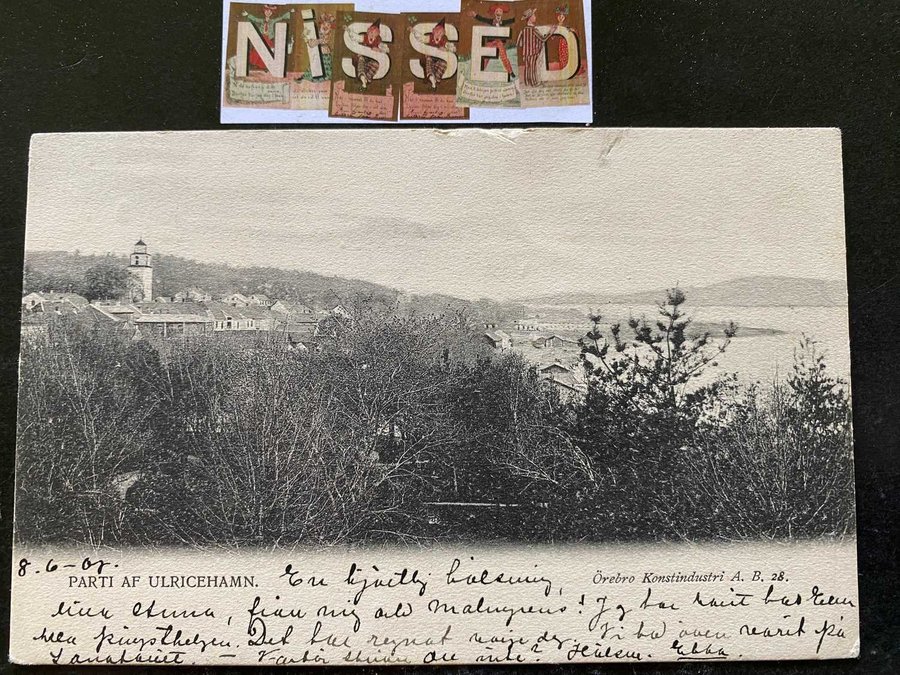 NISSED
8.6-07.
PARTI AF ULRICEHAMN. En hjärtlig hälsning, Örebro Konstindustri A. B. 28.
lilla Anna, från mig och Malmgrens! Jg har varit hos Ellen
hela pingsthelgen. Det har regnat varje dag. Vi ha även varit på
Sanatoriet. – Varför skriver du inte? Hälsn. Ebba.